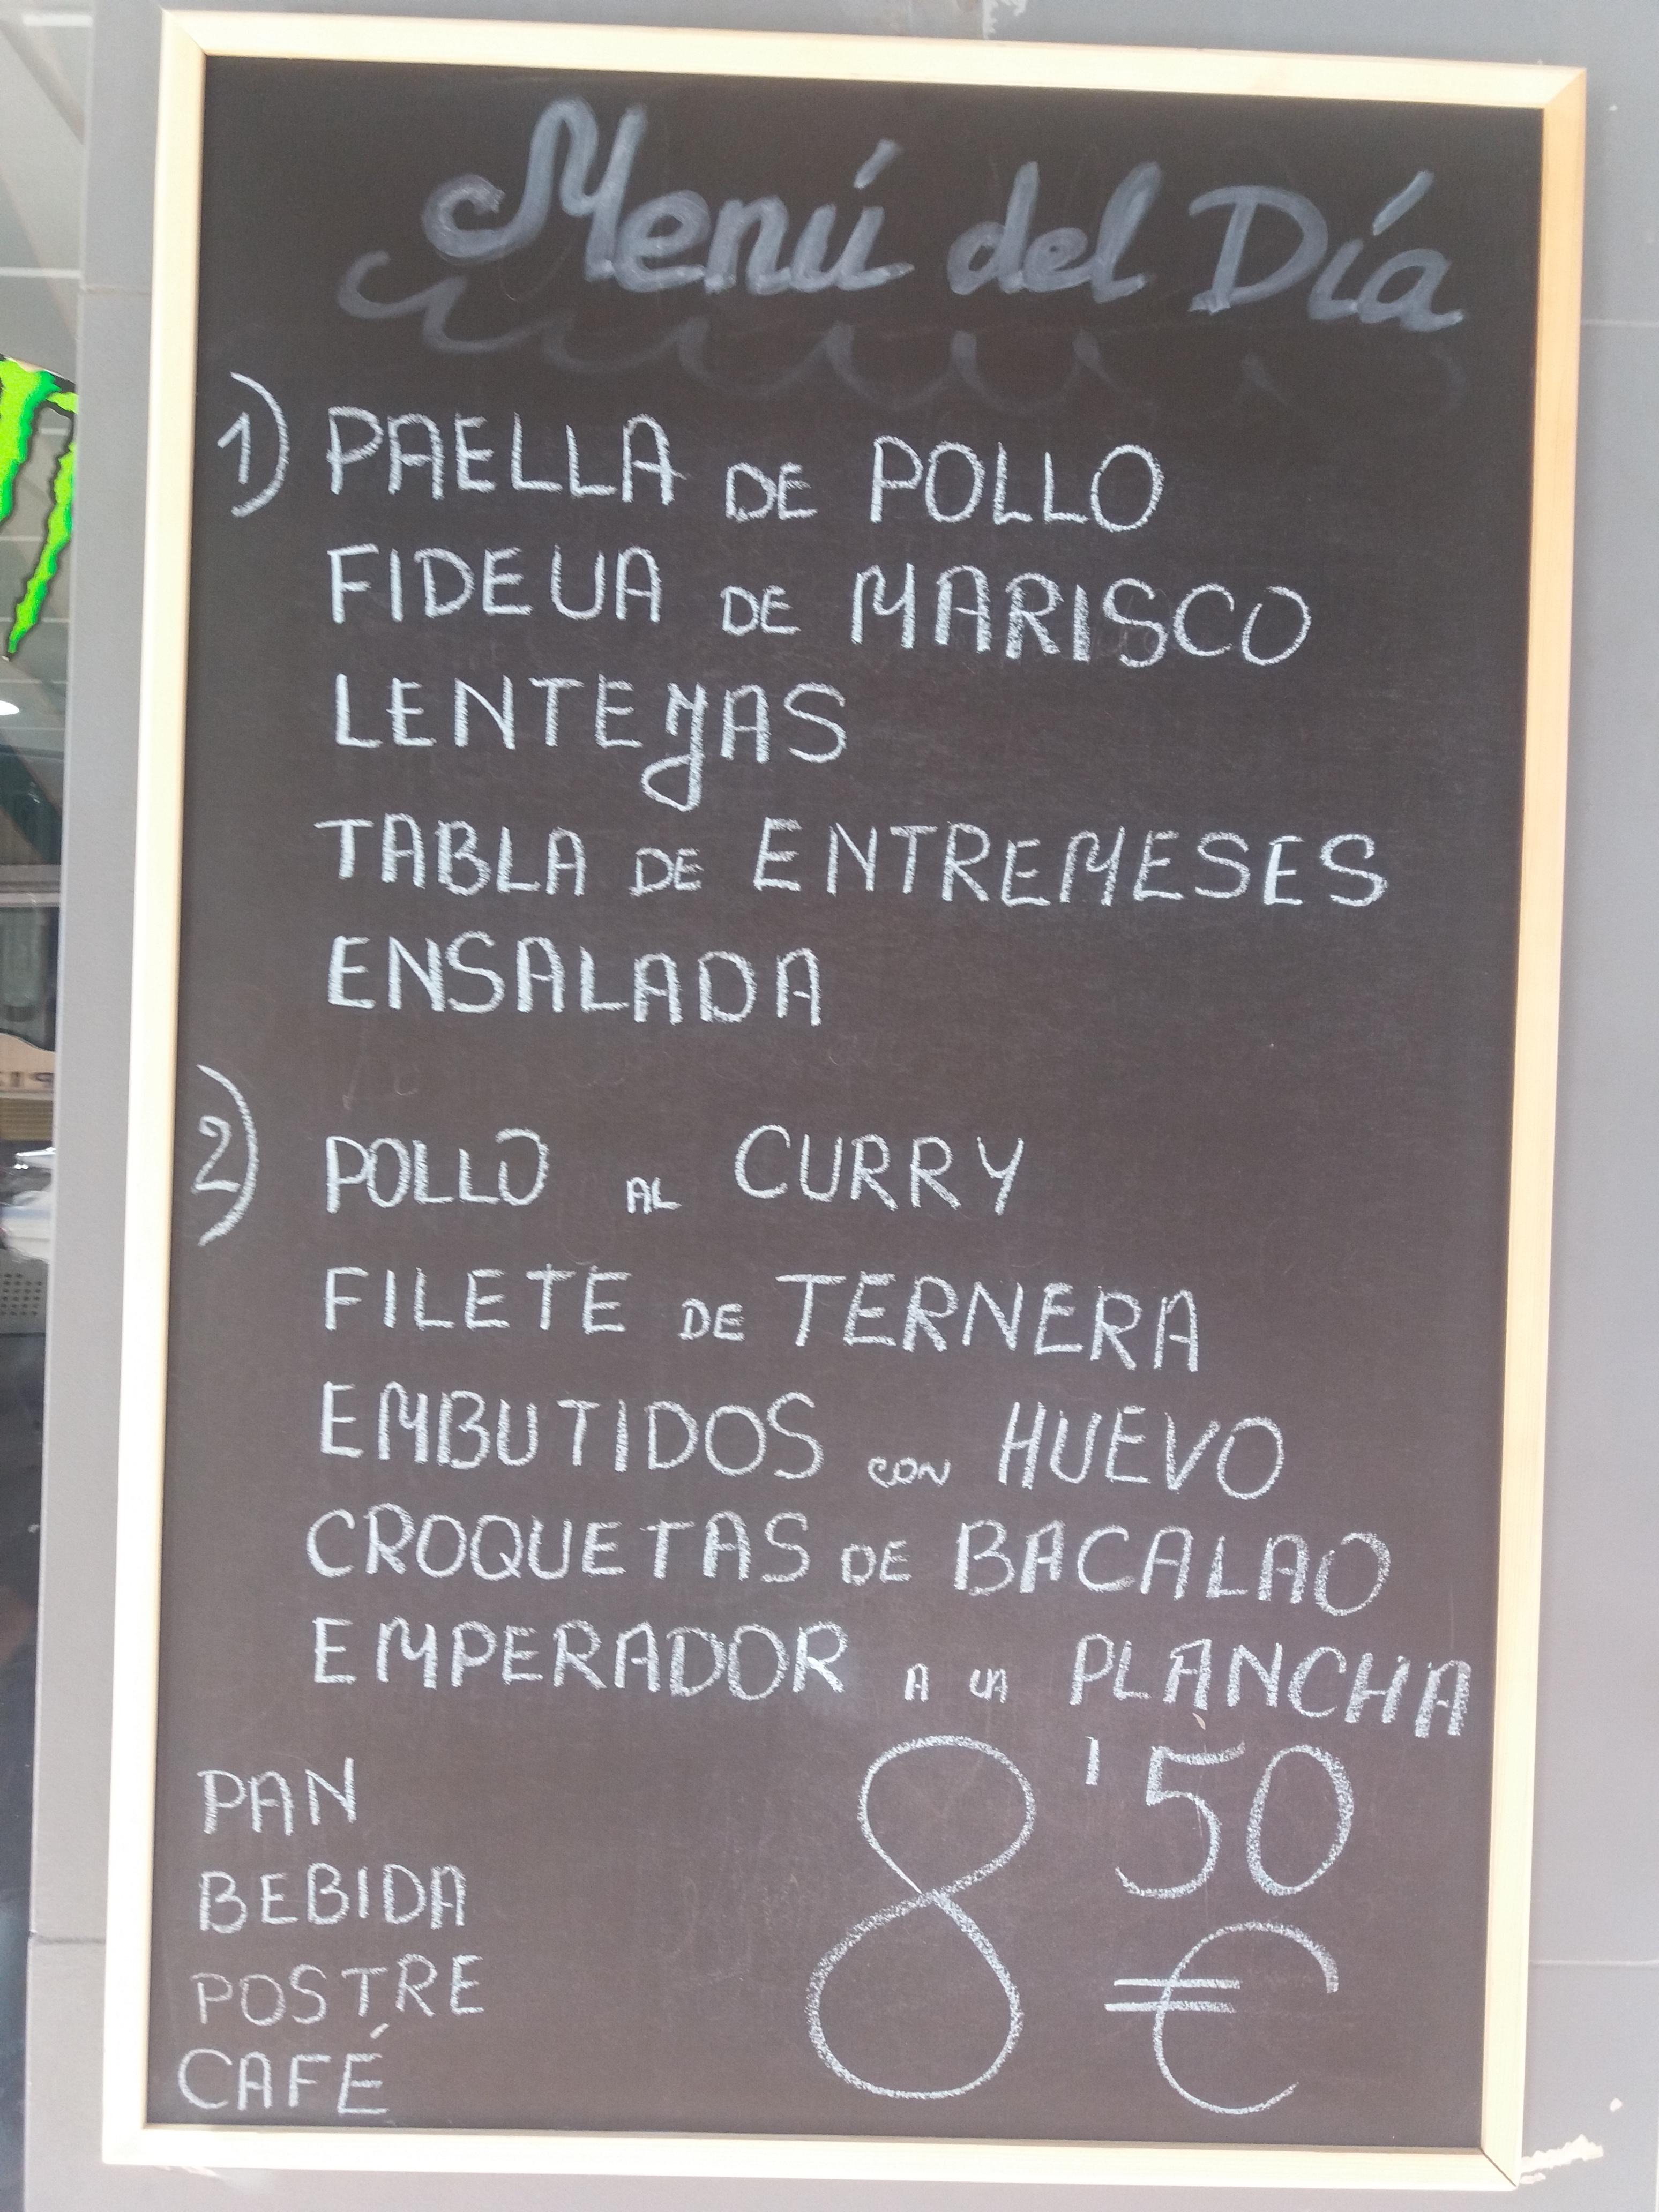 Menú del Día
1) PAELLA DE POLLO
FIDEUA DE MARISCO
LENTEJAS
TABLA DE ENTREMESES
ENSALADA
2) POLLO AL CURRY
FILETE DE TERNERA
EMBUTIDOS CON HUEVO
CROQUETAS DE BACALAO
EMPERADOR A LA PLANCHA
PAN
BEBIDA
POSTRE
CAFÉ
8'50 €